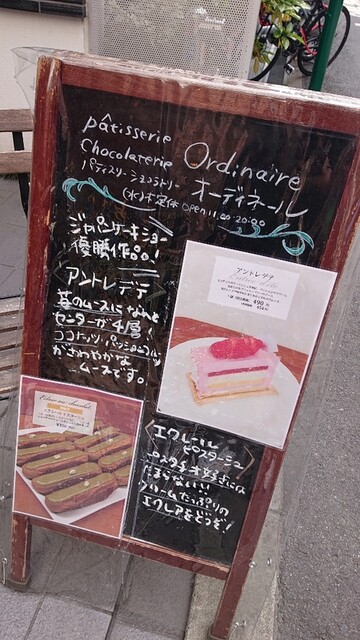 pâtisserie
Chocolaterie Ordinaire
パティスリーショコラトリー オーディネール
(水)木定休 open 11:00-20:00
ジャパンケーキショー
優勝作品!
アントレデテ
苺のムースになんと
センターが4層!
ココナッツ パッションフルーツ
がさわやかな
ムースです。
アントレデテ
490
エクレール
ピスターシュ
ピスタチオ好きには
たまらない!!
クリームたっぷりの
エクレアをどうぞ!